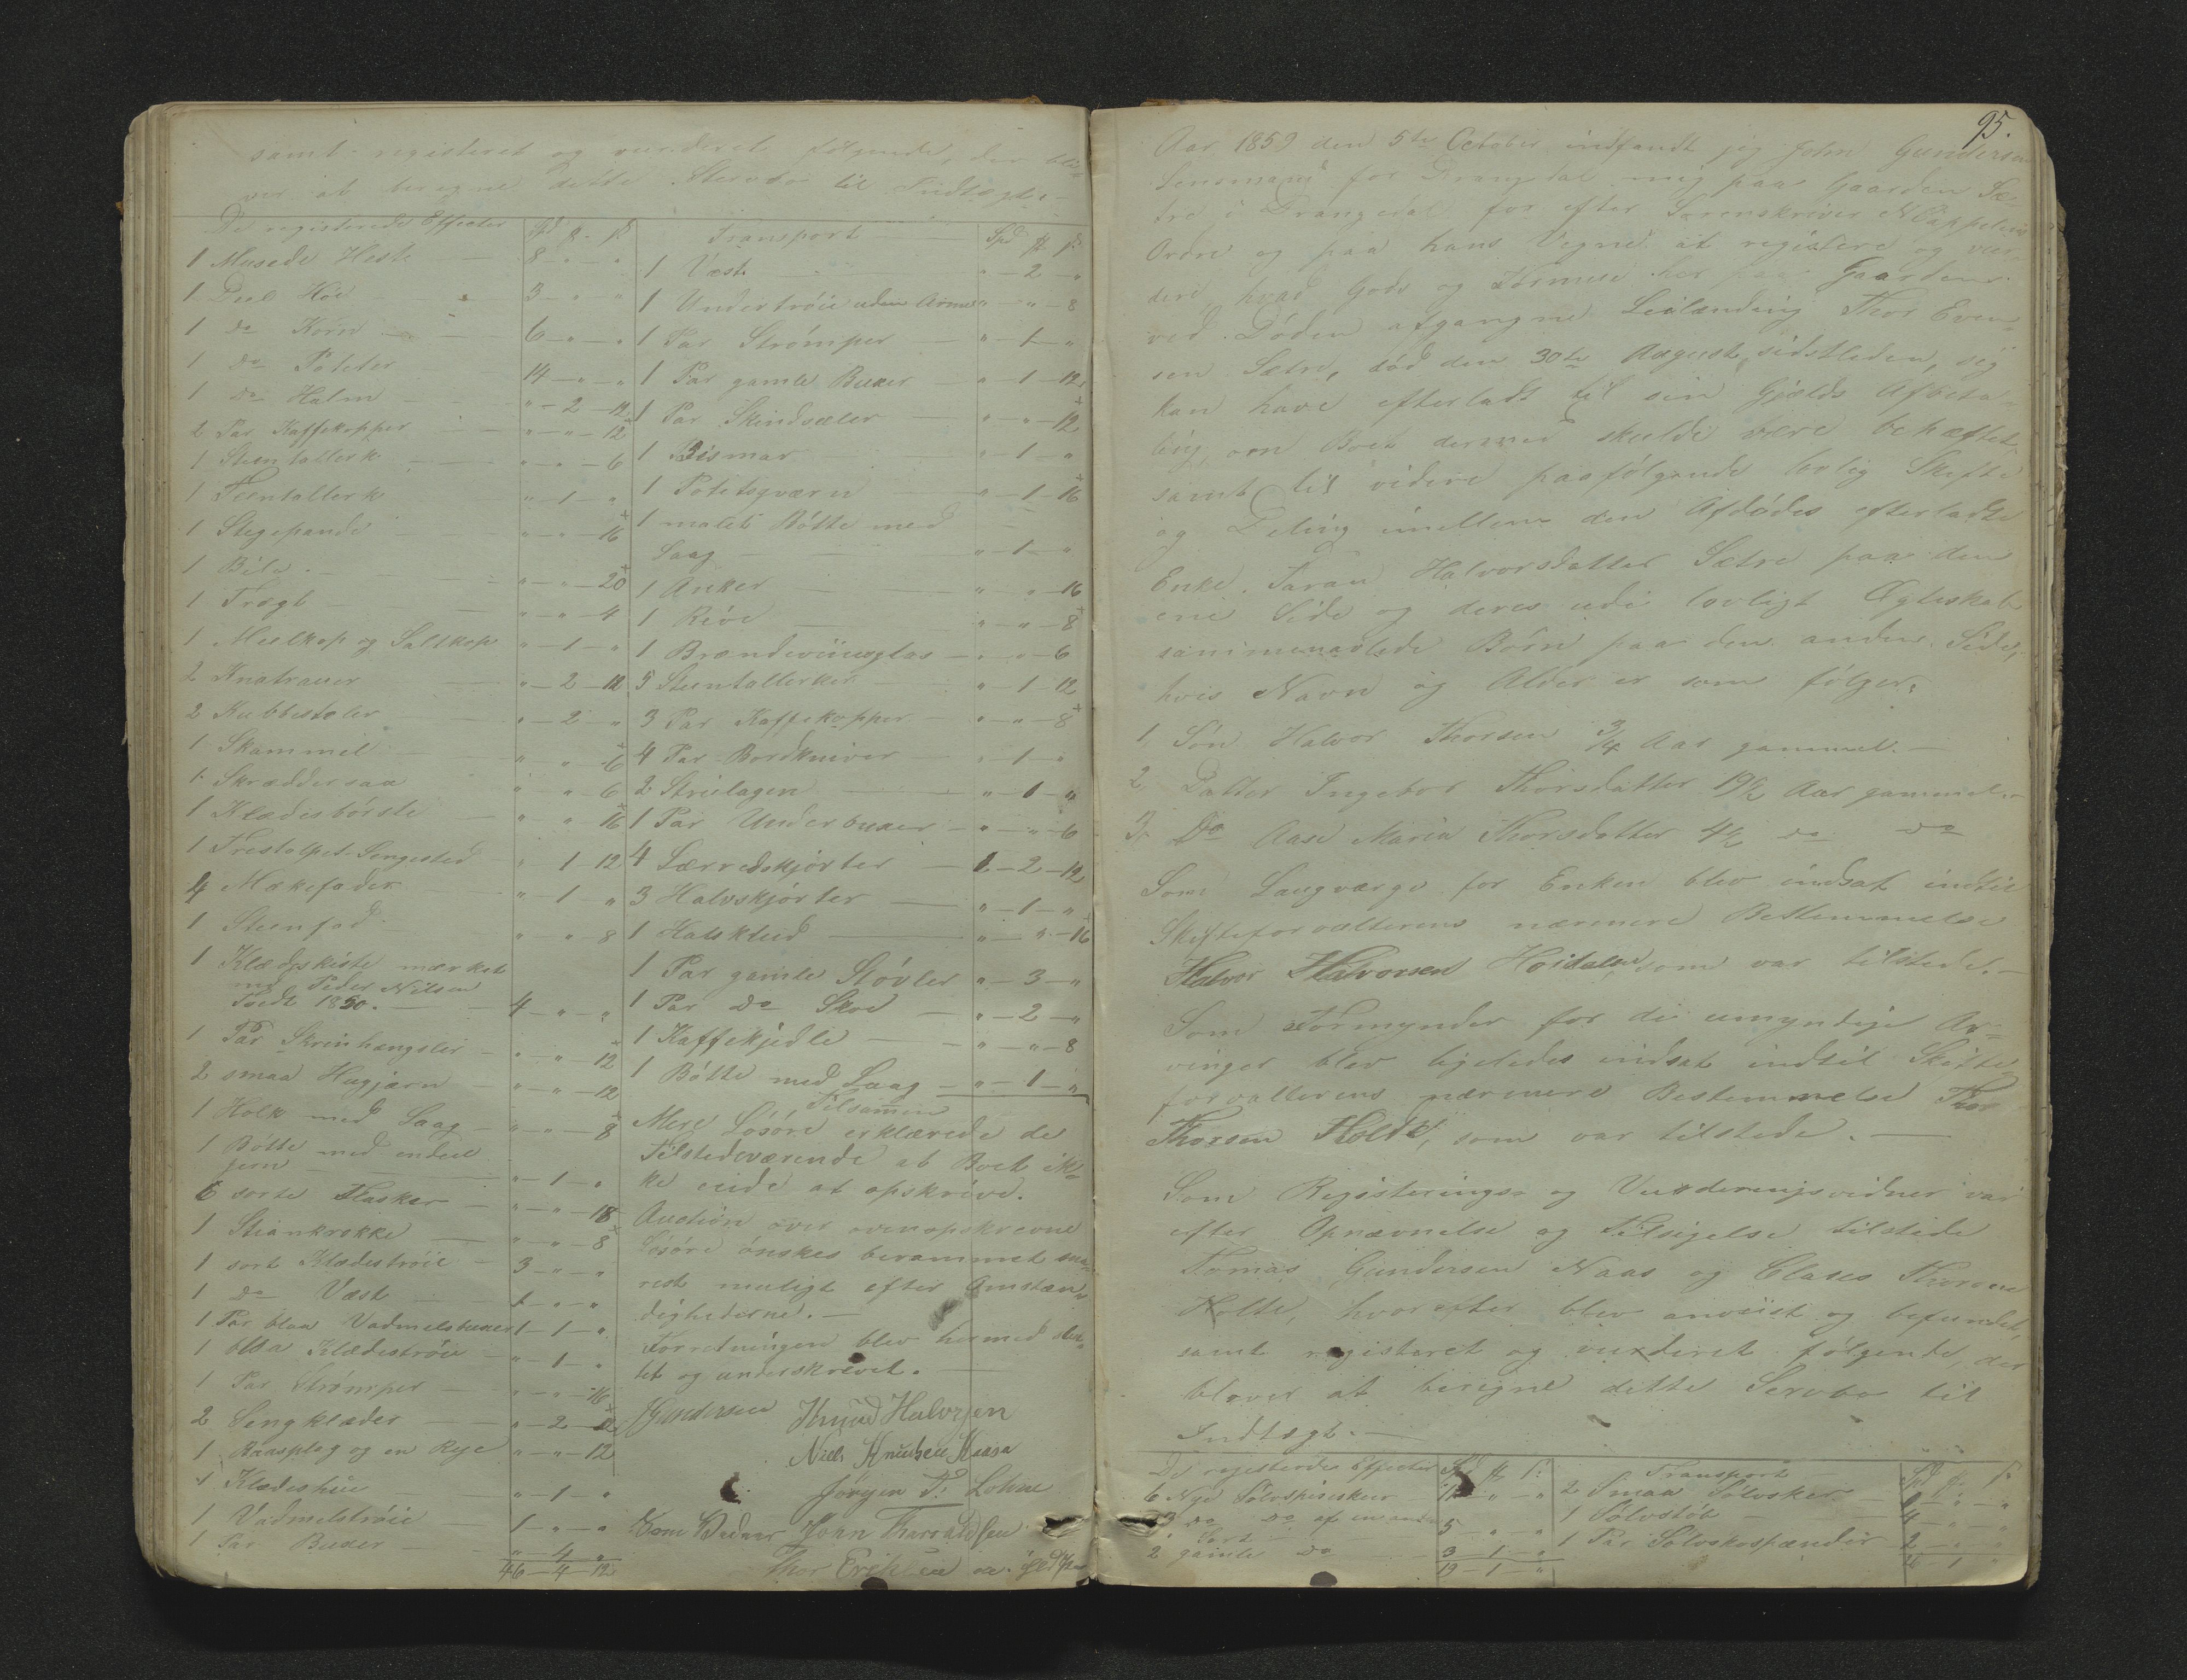 samt registeret og vurderet følgende, der bli-
ver at beregne dette Stervbo til Indtægt.
De registerede Effecter Spd ß
1 Musede Hest 8 - " - "
1 Deel Höe 3 - " - "
1 do Korn 6 - " - "
1 do Poteter 14 - " - "
1 do Halm " - 2 - 12
2 Par Kaffekopper " - " - 12
1 Steentallerk " - " - 6
1 Teentallerk " - 1 - "
1 Stegepande " - " - 16
1 Bile " - " - 20
1 Tragt " - " - 4
1 Meelkop og Saltkop " - 1 - "
2 Knatrauer " - 2 - 12
2 Kubbestoler " - 2 - "
1 Skammel " - " - 6
1 Skræddersax " - " - 6
1 Klædesbörste " - " - 16
1 Trestolpet Sengested " - 1 - 12
4 Mækefader " - 1 - "
1 Steenfad " - " - 8
1 Klædeskiste mærket
Peder Nilsen
Födt 1850. 4 - " - "
1 Par Skrinhængsler " - " - 12
2 smaa Hugjærn " - " - 12
1 Holk med Laag " - " - 8
1 Bötte med endeel
jern " - 1 - "
6 sorte Flasker " - " - 18
1 Steenkrokke " - " - 8
1 sort Klædeströie 3 - " - "
1 do Væst 1 - " - "
1 Par blaa Vadmelsbuxer 1 - 1 - "
1 blaa Klædeströie " - 1 - "
1 Par Strömper " - " - 16
2 Sengklæder " - 2 -
1 Baaspleg og en Reje " - " - 12
1 Klædeshue " - 1 - "
1 Vadmelströie 1 - " - "
1 Par Buxer " - 4 - "
46 - 4 - 12
Transport Spd ß
1 Væst " - 2 - "
1 Undertröie uden Arme " - " - 8
1 Par Strömper " - 1 - "
1 Par gamle Buxer " - 1 - 12
1 Par Skindsæler " - " - 12
1 Bismar " - 1 - "
1 Potetsqværn " - 1 - 16
1 malet Bötte med
Laag " - 1 - "
1 Anker " - " - 16
1 Reöe " - " - 8
1 Brændeviinsglas " - " - 6
5 Steentallerker " - 1 - 12
3 Par Kaffekopper " - " - 8
4 Par Bordkniver " - 1 - "
2 Strielagen " - 1 - "
1 Par Underbuxer " - " - 6
4 Lærredskjorter 1 - 2 - 12
3 Halvskjorter " - 1 - "
1 Halsklud " - " - 16
1 Par gamle Stövler " - 3 - "
1 Par do Skoe " - 2 - "
1 Kaffekjedle " - " - 8
1 Bötte med Laag " - 1 - "
Tilsammen
Mere Lösöre erklærede de
Tilstedeværende at Boet ik-
ke eiede at opskrive.
Auction over ovenopskrevne
Lösöre önskes berammet sna-
rest muligt efter Omstæn-
dighederne.
Forretningen blev hermed slut-
tet og underskrevet.
JGundersen Knud Halvorsen
Niels Knudsen Naasa
Jörgen P. Lohne
Som Vidner John Tharaldsen
Thor Eriksen
95.
Aar 1859 den 5te October indfandt jeg John Gundersen
Lensmand for Drangedal mig paa Gaarden Sæ-
tre i Drangedal for efter Sorenskriver NCappelens
Ordre og paa hans Vegne at registere og vur-
dere, hvad Gods og Formue her paa Gaarden
ved Döden afgangne Leilænding Thor Even-
sen Sætre, död den 30te August sidstleden, sig
kan have efterladt til sin Gjælds Afbeta-
ling, om Boet dermed skulde være behæftet,
samt til videre paafölgende lovlig Skifte
og Deling imellem den Afdödes efterladte
Enke Taran Halvorsdatter Sætre paa den
ene Side og deres udi lovligt Ægteskab
sammenavlede Börn paa den anden Side,
hvis Navn og Alder er som fölger:
1, Sön Halvor Thorsen 3/4 Aar gammel.
2, Datter Ingebor Thorsdatter 19½ Aar gammel.
3, Do Aase Maria Thorsdatter 4½ do do
Som Laugværge for Enken blev indsat indtil
Skifteforvalterens nærmere Bestemmelse
Halvor Halvorsen Höidalen som var tilstede.
Som Formynder for de umyndige Ar-
vinger blev ligeledes indsat indtil Skifte-
forvalterens nærmere Bestemmelse Thor
Thorsen Holte, som var tilstede.
Som Registerings- og Vurderingsvidner var
efter Opnævnelse og Tilsigelse tilstede
Tomas Gundersen Naas og Clases Thorsen
Holte, hvorefter blev anviist og befundet,
samt registeret og vurderet fölgende, der
bliver at beregne dette Servbo til
Indtægt.
De registerede Effecter Spd ß Transport Spd ß
6 Nye Sölvspiseskeer " - " 2 Smaa Sölvskeer 1 - " - "
3 do do af en anden
Sort 5 - " - " 1 Sölvstöb 4 - " - "
2 gamle do 3 - 1 - " 1 Par Sölvskospænder 2 - " - "
19 - 1 - "